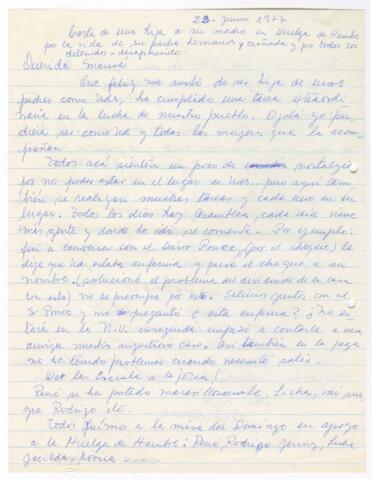 22-Junio 1977
Carta de una hija a su madre en Huelga de Hambre
por la vida de su padre hermanos y cuñada y por todos los
detenidos-desaparecido.
Querida Mamá
Que feliz me siento de ser hija de unos
padres como Uds, ha cumplido una tarea extraordi
naria en la lucha de nuestro pueblo. Ojalá yo pu
diera ser como Ud y todas las mujeres que la acom
pañan.
Todos acá sienten un poco de nostalgia
por no poder estar en el lugar de Uds... pero aquí tam
bién se realizan muchas tareas y cada uno en su
lugar. Todos los días hay Asamblea, cada día viene
más gente y donde he ido se comenta. Por ejemplo:
fui a conversar con el señor Ponce, (por el cheque) le
dije que Ud estaba enferma y puso el cheque a su
nombre. (solucioné el problema del dividendo de la casa
con esto) no se preocupe por esto. Salimos juntos con el
Sr Ponce y me preguntó ¿está enferma? ¿no es
tará en la N.U. enseguida empezó a contarle a una
amiga nuestro angustioso caso. Así también en la pega
no he tenido problemas cuando necesité salir.
a la
René se ha portado Licha, mi sue
gra Rodrigo etc.
Todos fuimos a la misa del Domingo en apoyo
a la Huelga de Hambre: René, Rodrigo Jenny, Licha